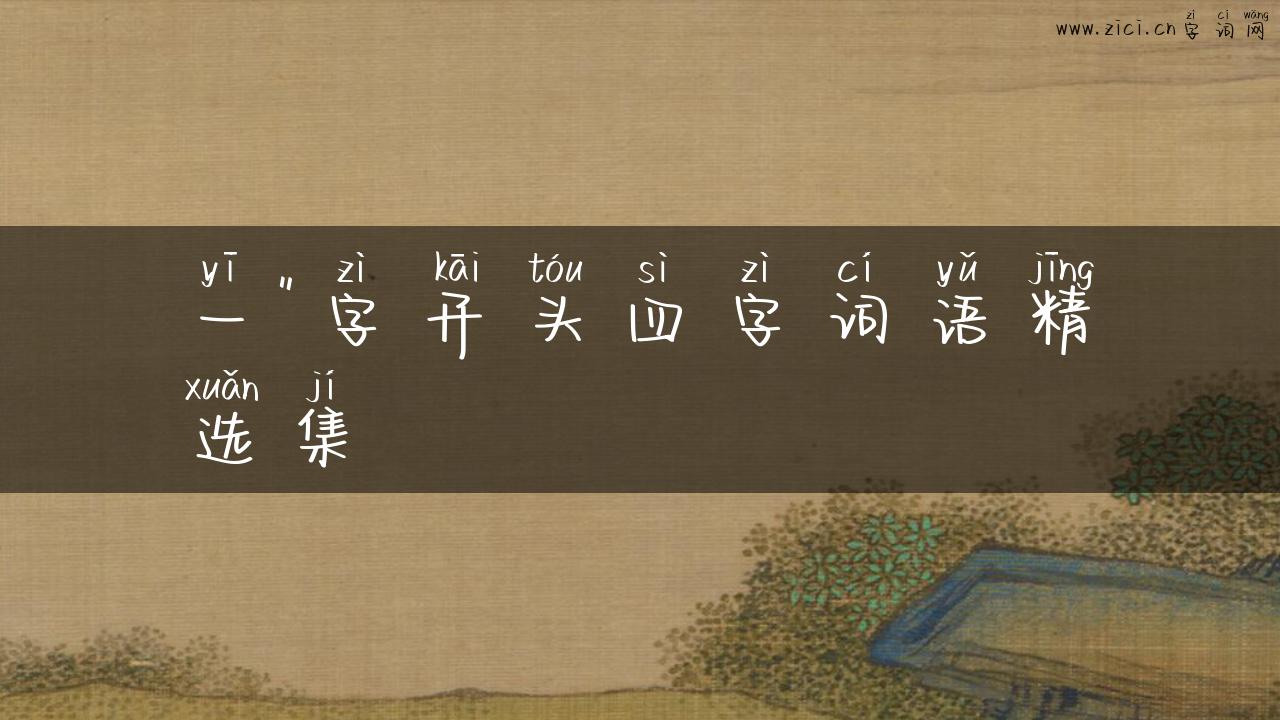 zì cí wǎng
www.zici.cn 字词网
yī zì kāi tóu sì zì cí yǔ jīng
一”字开头四字词语精
xuǎn jí
选集